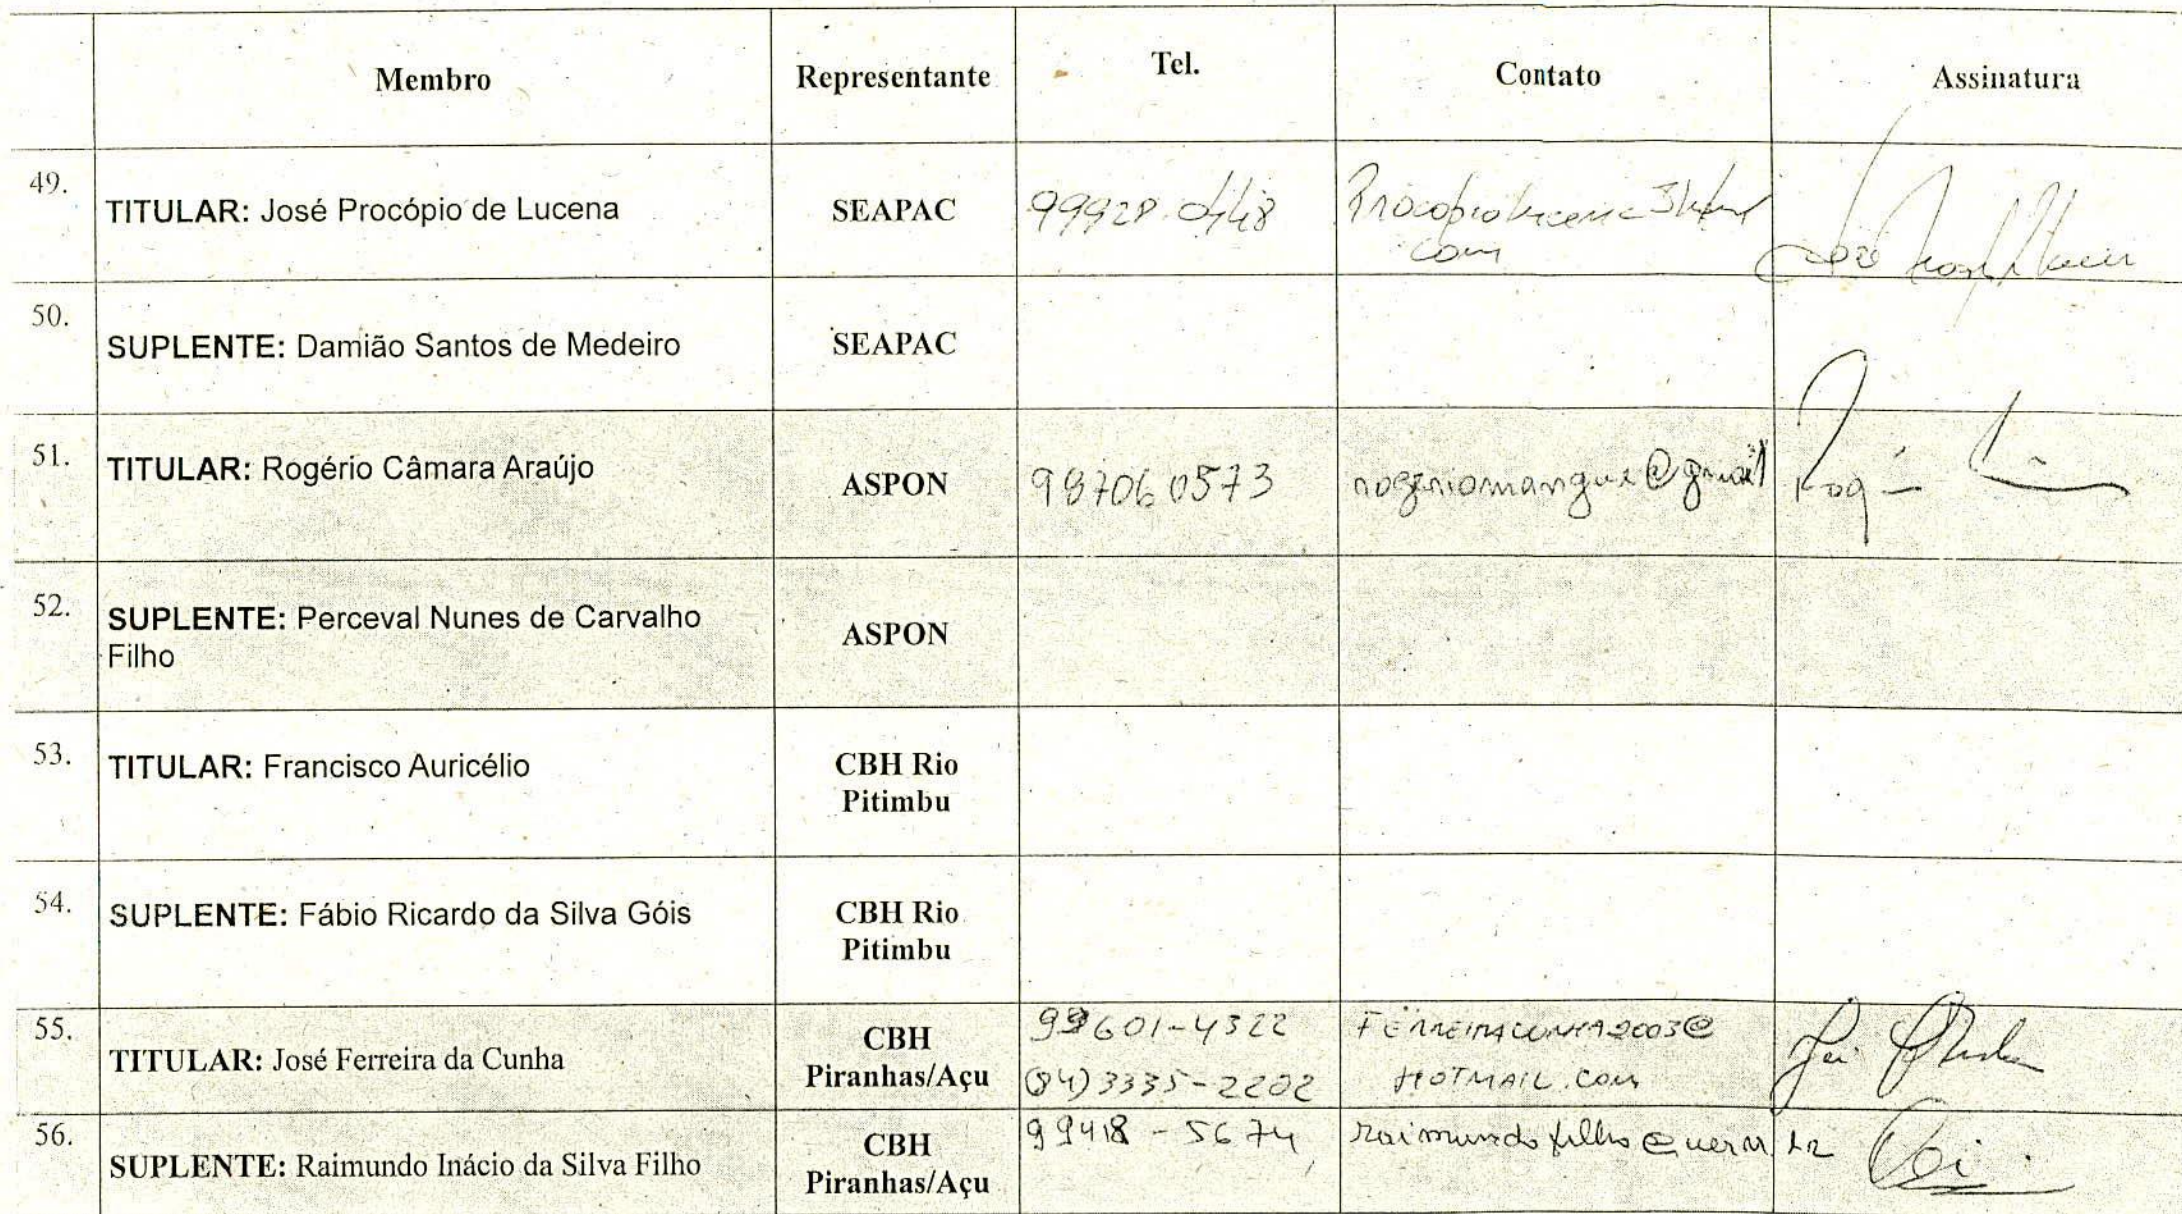 Membro Representante Tel. Contato Assinatura
49. TITULAR: José Procópio de Lucena SEAPAC
com
50. SUPLENTE: Damião Santos de Medeiro SEAPAC
51. TITULAR: Rogério Câmara Araújo ASPON 987060573 rogeriomangue@gmail
52. SUPLENTE: Perceval Nunes de Carvalho
Filho
ASPON
53. TITULAR: Francisco Auricélio CBH Rio
Pitimbu
54. SUPLENTE: Fábio Ricardo da Silva Góis CBH Rio
Pitimbu
55. TITULAR: José Ferreira da Cunha CBH
Piranhas/Açu
99601-4322
(84) 3335-2202
FERREIRACUNHA2003@
HOTMAIL.COM
56. SUPLENTE: Raimundo Inácio da Silva Filho CBH
Piranhas/Açu
99418-5674